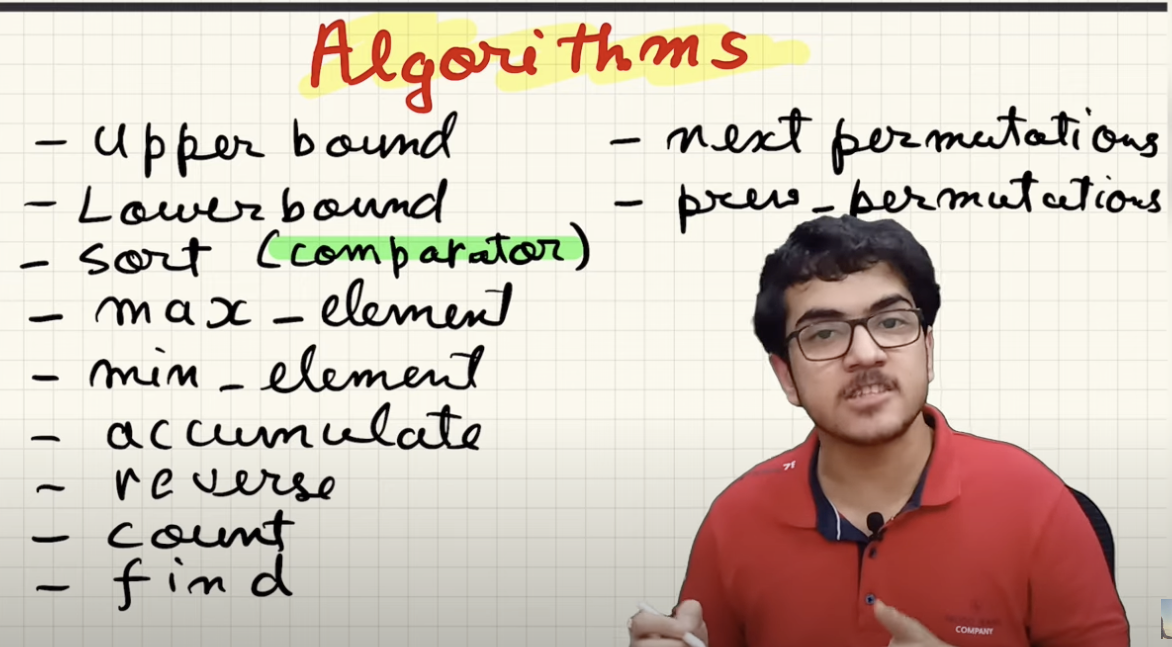 Algorithms
- Upper bound
- Lower bound
- sort (comparator)
- max - element
- min - element
- accumulate
- reverse
- count
- find
- next permutations
- prev - permutations
COMPANY